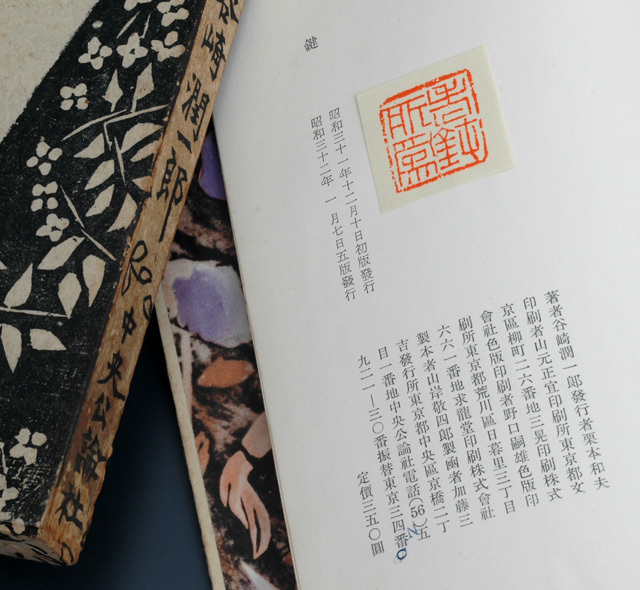 鍵
昭和三十一年十二月十日初版發行
昭和三十二年 一月七日五版發行
著者谷崎潤一郎發行者栗本和夫
印刷者山元正宜印刷所東京都文
京區柳町二六番地三晃印刷株式
會社色版印刷者野口嗣雄色版印
刷所東京都荒川區日暮里三丁目
六六一番地求龍堂印刷株式會社
製本者山岸敬四郎製凾者加藤三
吉發行所東京都中央區京橋二丁
目一番地中央公論社電話(56)五
九二一―三〇番振替東京三四番
定價三五〇圓
崎潤一郎
中央公論社